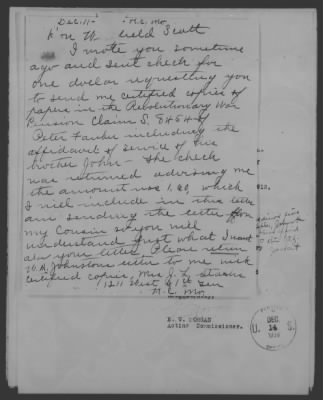 Dec. 11- K.C. Mo.
Hon W. field Scott
I wrote you sometime
ago and sent check for
one dollar requesting you
to send me certified copies of
papers in the Revolutionary War
Pension Claim S.
Peter including the
affidavit of service of his
brother John - The check
was returned advising me
the amount was 1.60, which
I will include in this letter
am sending the letter from
my Cousin so you will
understand just what I want
also your letter Please return
W.H. Johnstons letter to me with
certified copies, Mrs J. L.
1211 West 61st Ter
K.C. Mo.
E. W. MORGAN
Acting Commissioner.
DEC.
14
U. S.